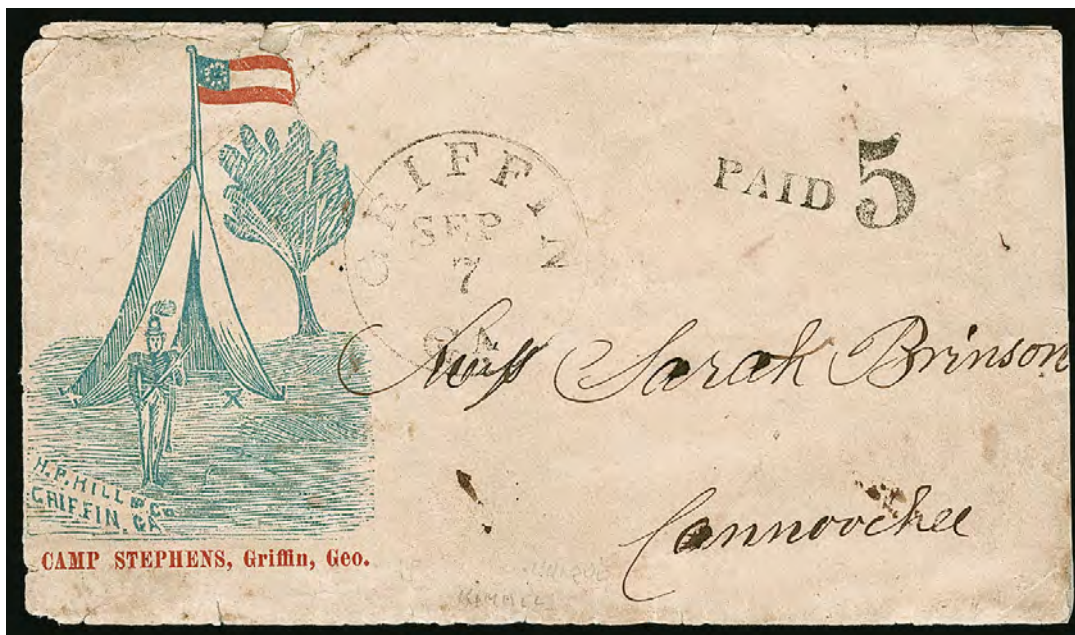 GRIFFIN
SEP
7
GA
PAID 5
Miss Sarah Brinson
Cannoochee
H.P. HILL & Co
GRIFFIN, GA
CAMP STEPHENS, Griffin, Geo.
KIMMEL